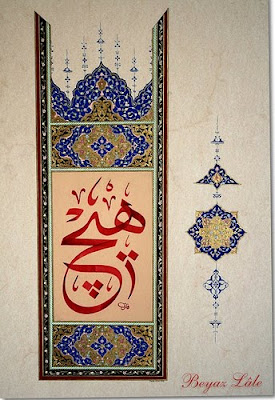 هيچ
Beyaz Lâle